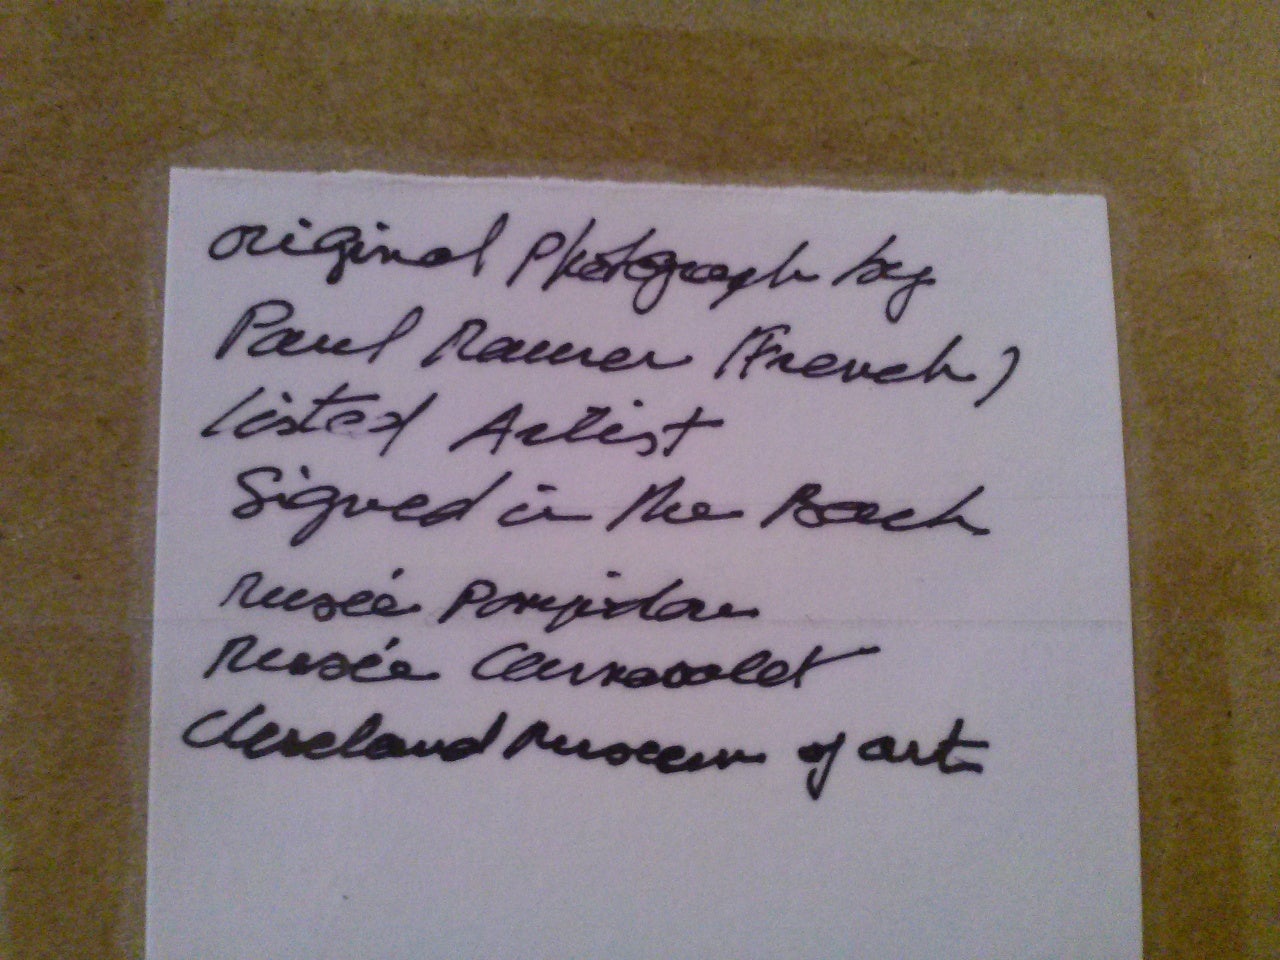 Original Photograph by
Paul (French)
Listed Artist
Signed in the Back
Musée Pompidou
Musée Carnavalet
Cleveland Museum of art